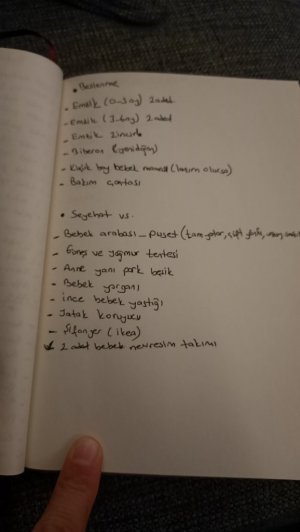 • Beslenme
- Emzik (0-3ay) 2 adet
- Emzik (3-6ay) 2 adet
- Emzik zinciri
- Biberon (yenidoğan)
- Klasik boy bebek maması (lazım olursa)
- Bakım çantası
• Seyehat vs.
- Bebek arabası - puset (tam yatar, çift yönlü,
- Güneş ve yağmur tentesi
- Anne yanı park beşik
- Bebek yorganı
- ince bebek yastığı
- Yatak koruyucu
- Şifonyer (ikea)
2 adet bebek nevresim takımı